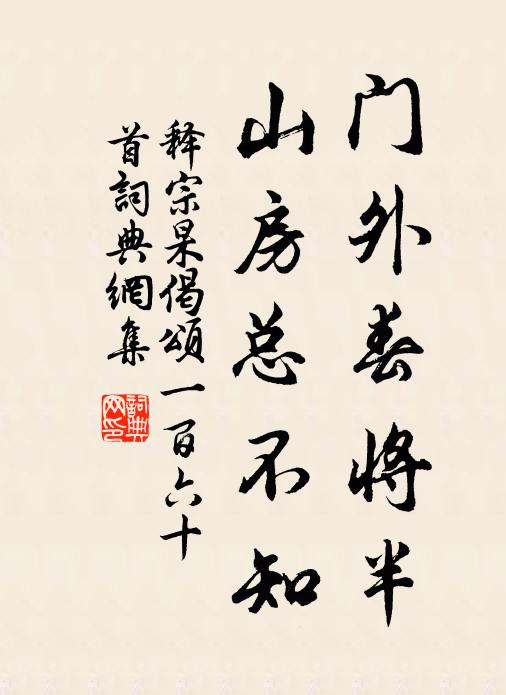 门外春将半
山房总不知
释宗杲偈颂一百六十
首词典網集
詞典
网印